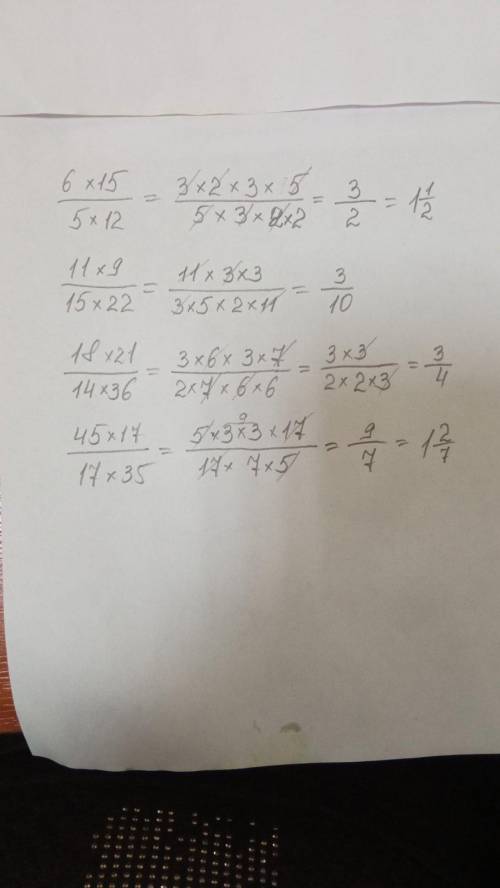 6 × 15 / 5 × 12 = 3 × 2 × 3 × 5 / 5 × 3 × 2 × 2 = 3 / 2 = 1 1/2
11 × 9 / 15 × 22 = 11 × 3 × 3 / 3 × 5 × 2 × 11 = 3 / 10
18 × 21 / 14 × 36 = 3 × 6 × 3 × 7 / 2 × 7 × 6 × 6 = 3 × 3 / 2 × 2 × 3 = 3 / 4
45 × 17 / 17 × 35 = 5 × 3 × 3 × 17 / 17 × 7 × 5 = 9 / 7 = 1 2/7
9